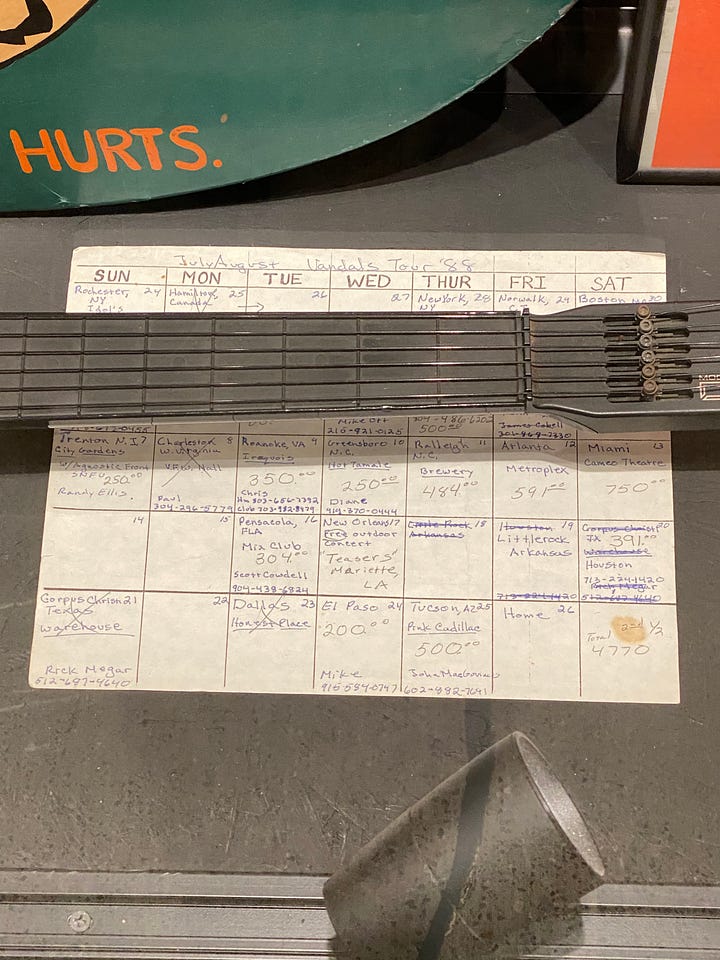 HURTS.
July August Vandals Tour '88
SUN MON TUE WED THUR FRI SAT
Rochester, 24
NY
Idol's
Hamilton, 25
Canada
26
27
New York, 28
NY
Norwalk, 29
CT
Boston MA 30
Mike Off
216-921-0125
500.00
James Cobell
Trenton N.J. 7
City Gardens
w/Agnostic Front
SNFU 250.00
Randy Ellis.
Charleston 8
W. Virginia
V.F.W. Hall
Paul
304-296-5779
Roanoke, VA 9
Iroquois
350.00
Chris
Hm 703-656-7792
Club 703-982-8979
Greensboro 10
N.C.
Hot Tamale
250.00
Diane
919-370-0444
Ralleigh 11
N.C.
Brewery
484.00
Atlanta 12
Metroplex
591.00
Miami 13
Cameo Theatre
750.00
14
15
Pensacola, 16
FLA
Mix Club
304.00
Scott Cowdell
904-438-6824
New Orleans 17
Free outdoor
concert
"Teasers"
Mariette,
LA
Little Rock 18
Arkansas
Houston 19
Littlerock
Arkansas
713-224-1420
Corpus Christi 20
TX 391.00
Warehouse
Houston
713-224-1420
Rick Megar
512-687-4640
Corpus Christi 21
Texas
Warehouse
Rick Megar
512-687-4640
22
Dallas 23
Honest Place
El Paso 24
200.00
Mike
915-584-0747
Tucson, AZ 25
Pink Cadillac
500.00
John MacGovin
602-882-7641
Home 26
Total
4770